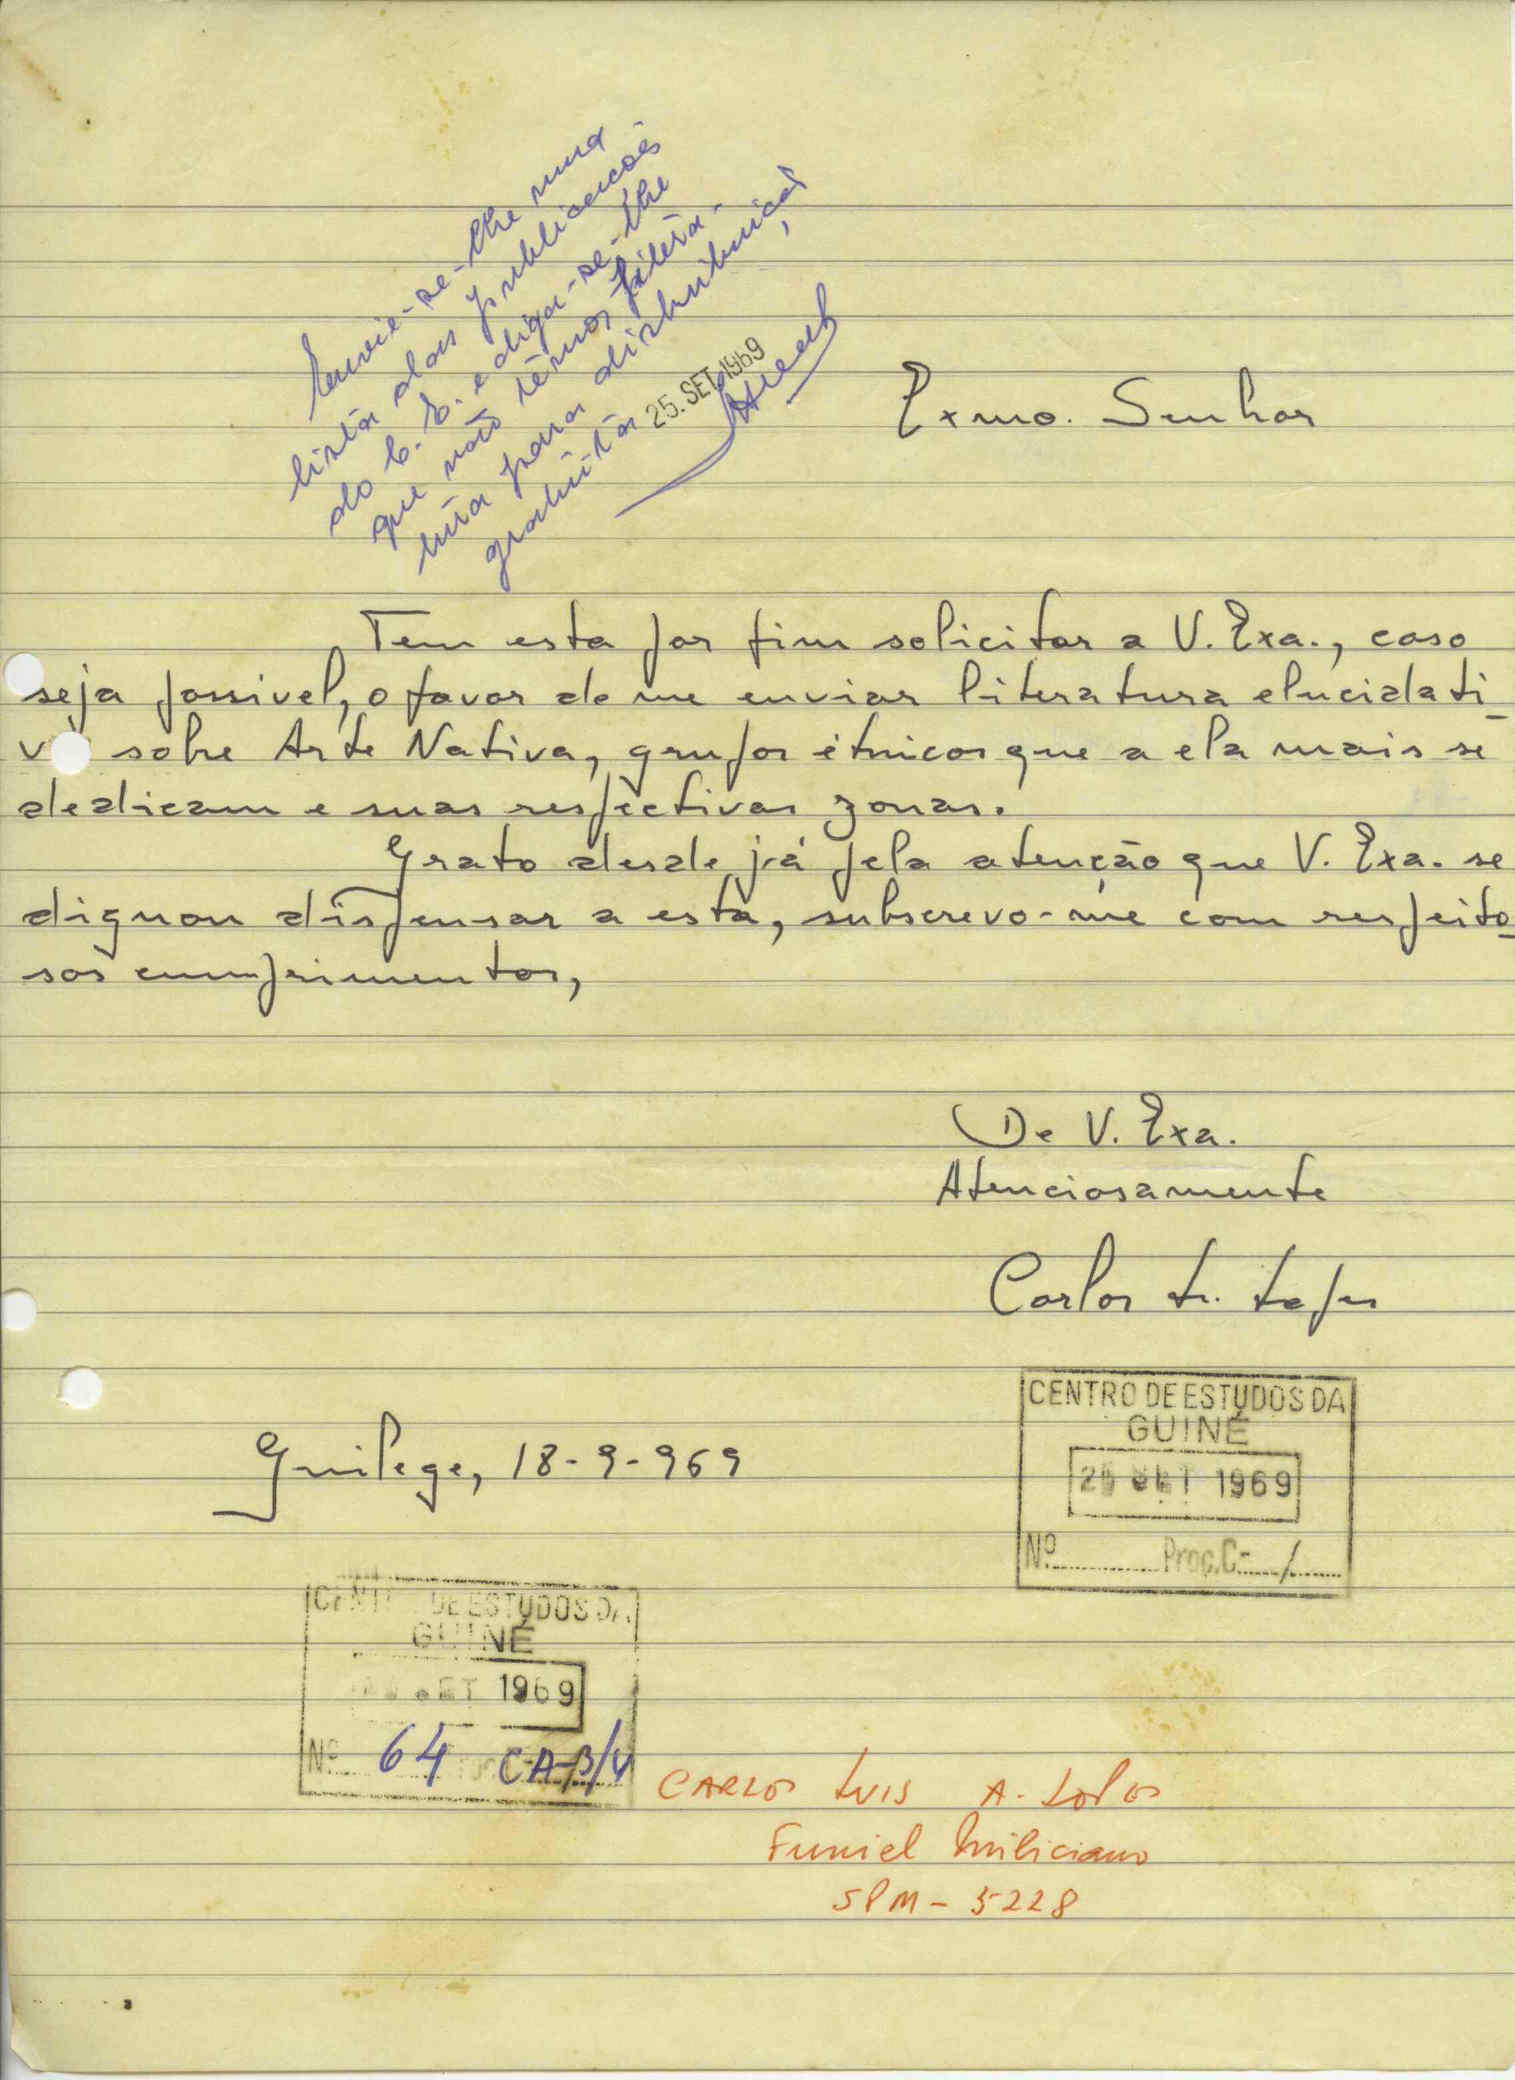 Envie-se-lhe uma
lista das publicações
do C. E. e diga-se-lhe
que não têmos litera-
tura para distribuição,
gratúita
25.SET.1969
Exmo. Senhor
Tem esta por fim solicitar a V. Exa., caso
seja possivel, o favor de me enviar literatura elucidati-
v sobre Arte Nativa, grupos étnicos que a ela mais se
dedicam e suas respectivas zonas.
Grato desde já pela atenção que V. Exa. se
dignou dispensar a esta, subscrevo-me com respeito-
sos cumprimentos,
De V. Exa.
Atenciosamente
Carlos L. Lopes
CENTRO DE ESTUDOS DA
GUINÉ
SET 1969
Nº Proc.C- /
Guilege, 18-9-969
CENT DE ESTUDOS DA
GUINÉ
SET 1969
Nº 64 C-A-B/4
CARLOS LUIS A. LOPES
Furriel Miliciano
SPM - 5228